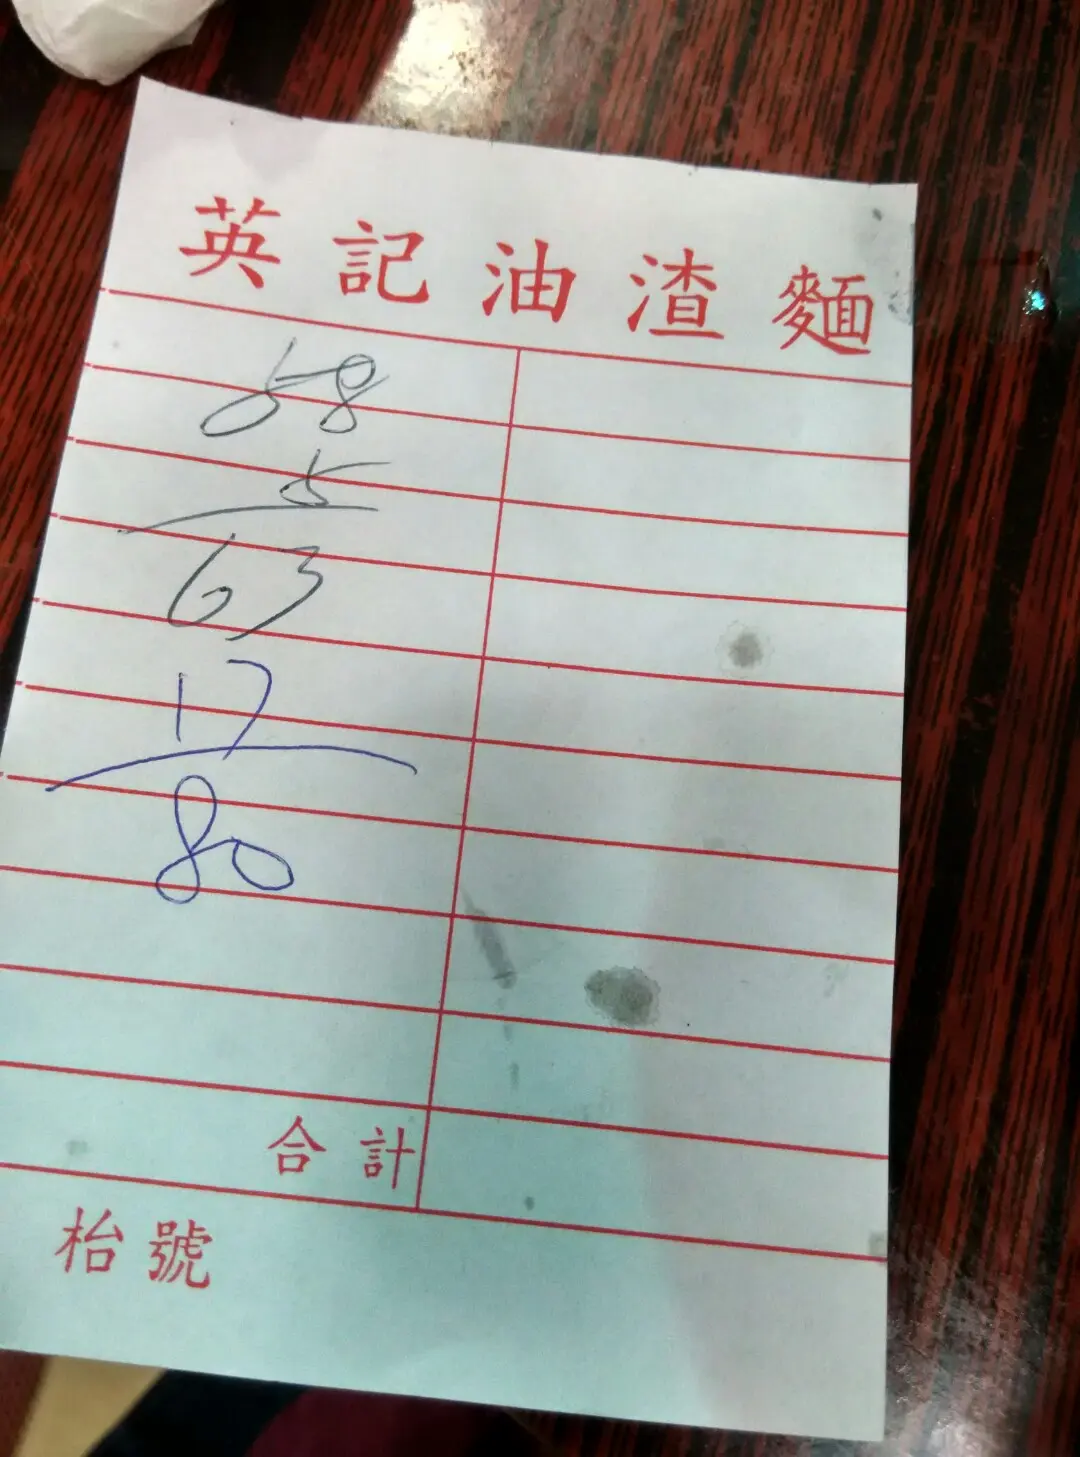 英記油渣麵
58
5
63
17
80
合計
枱號